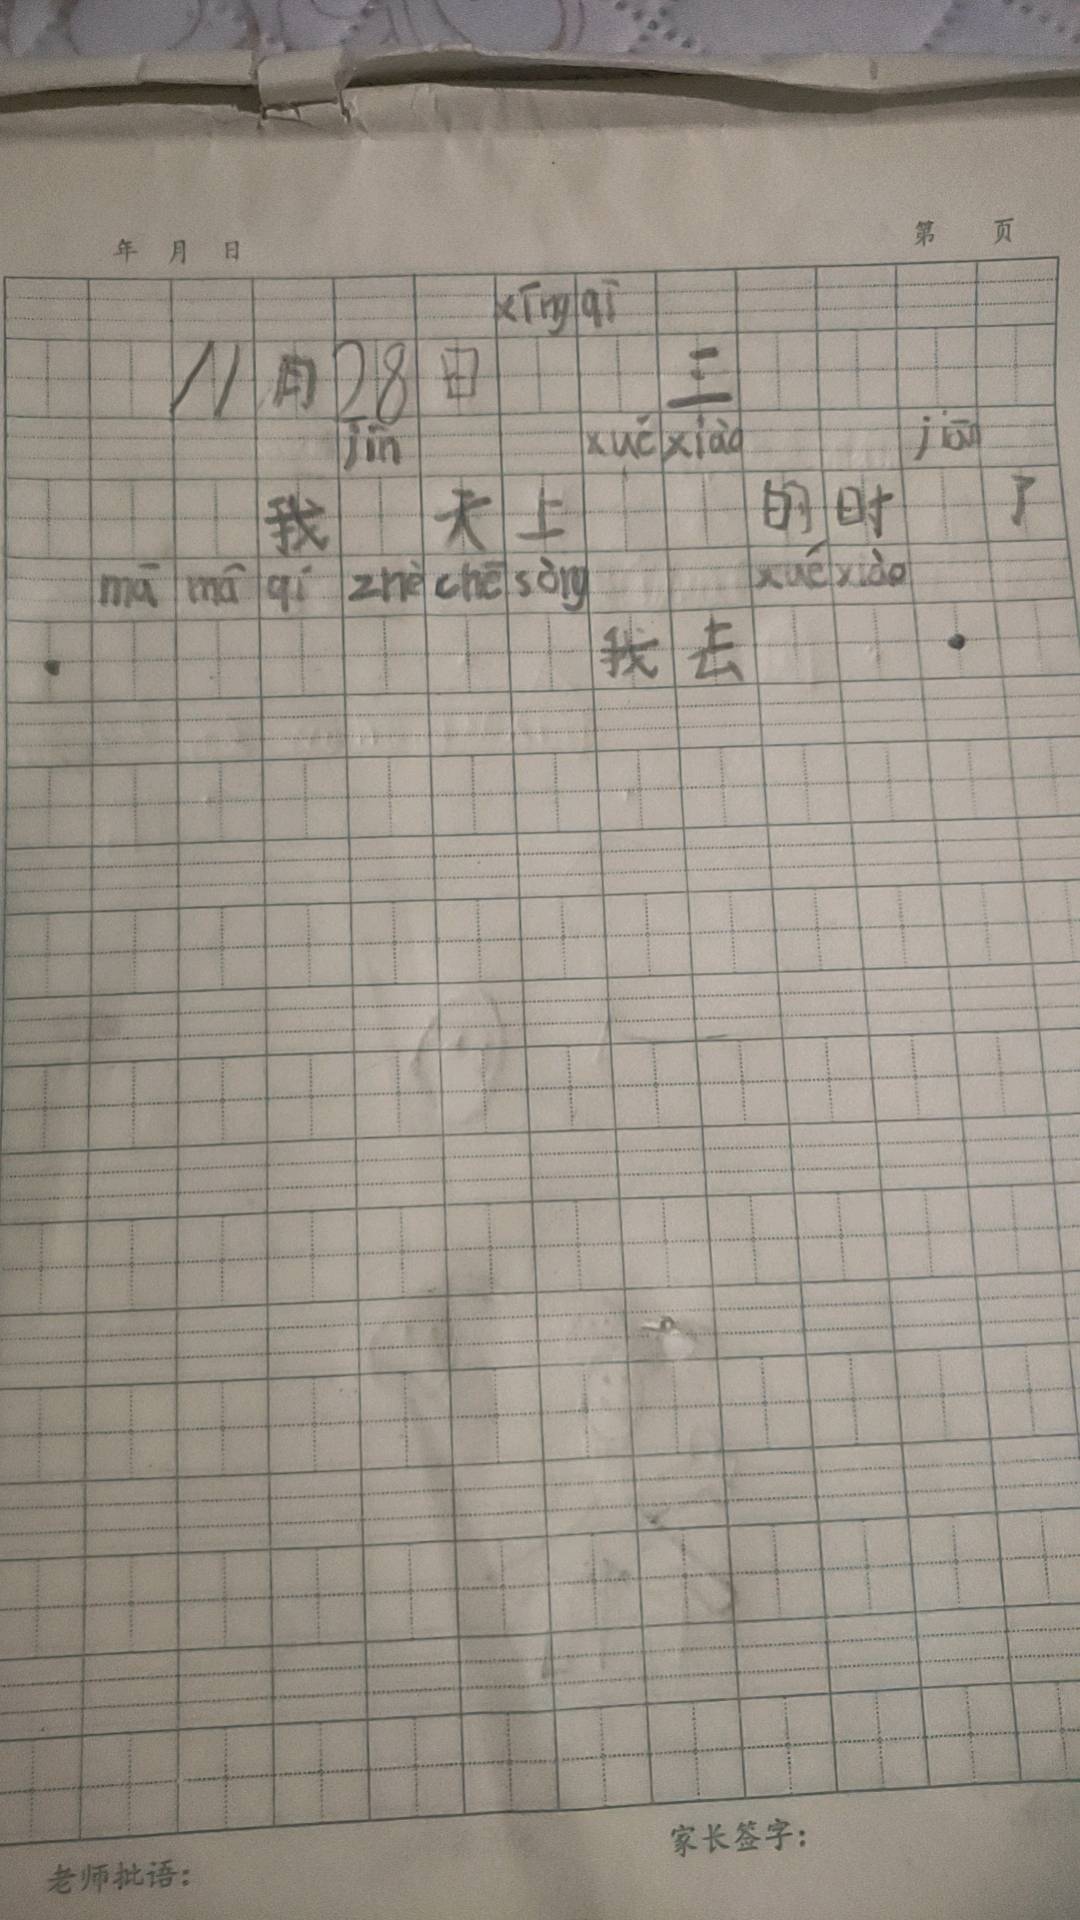 年 月 日 第 页
xīng qī
11月28日 三
jīn xué xiào jiān
我 天上 的时 了
mā mā qí zhè chē sòng xué xiào
。 我去 。
家长签字:
老师批语: